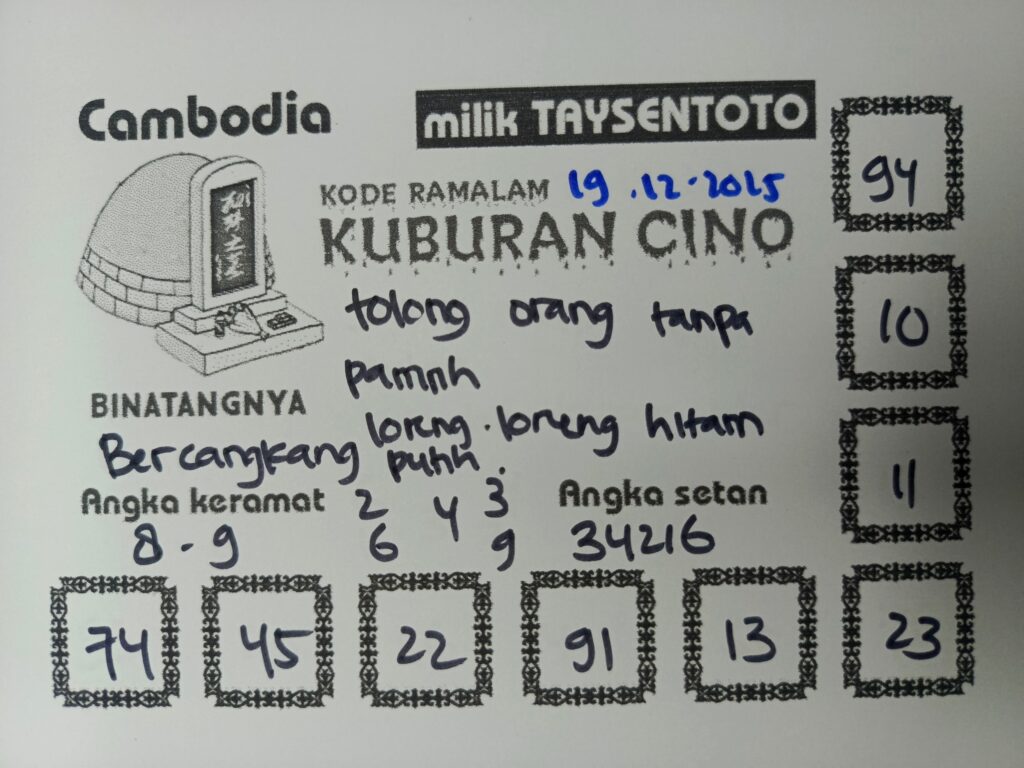 Cambodia
milik TAYSENTOTO
KODE RAMALAM 19.12.2025
KUBURAN CINO
tolong orang tanpa
pamrih
BINATANGNYA
Bercangkang loreng.loreng hitam
putih.
Angka keramat
8-9
2 4 3
6 9
Angka setan
34216
94
10
11
74 45 22 91 13 23